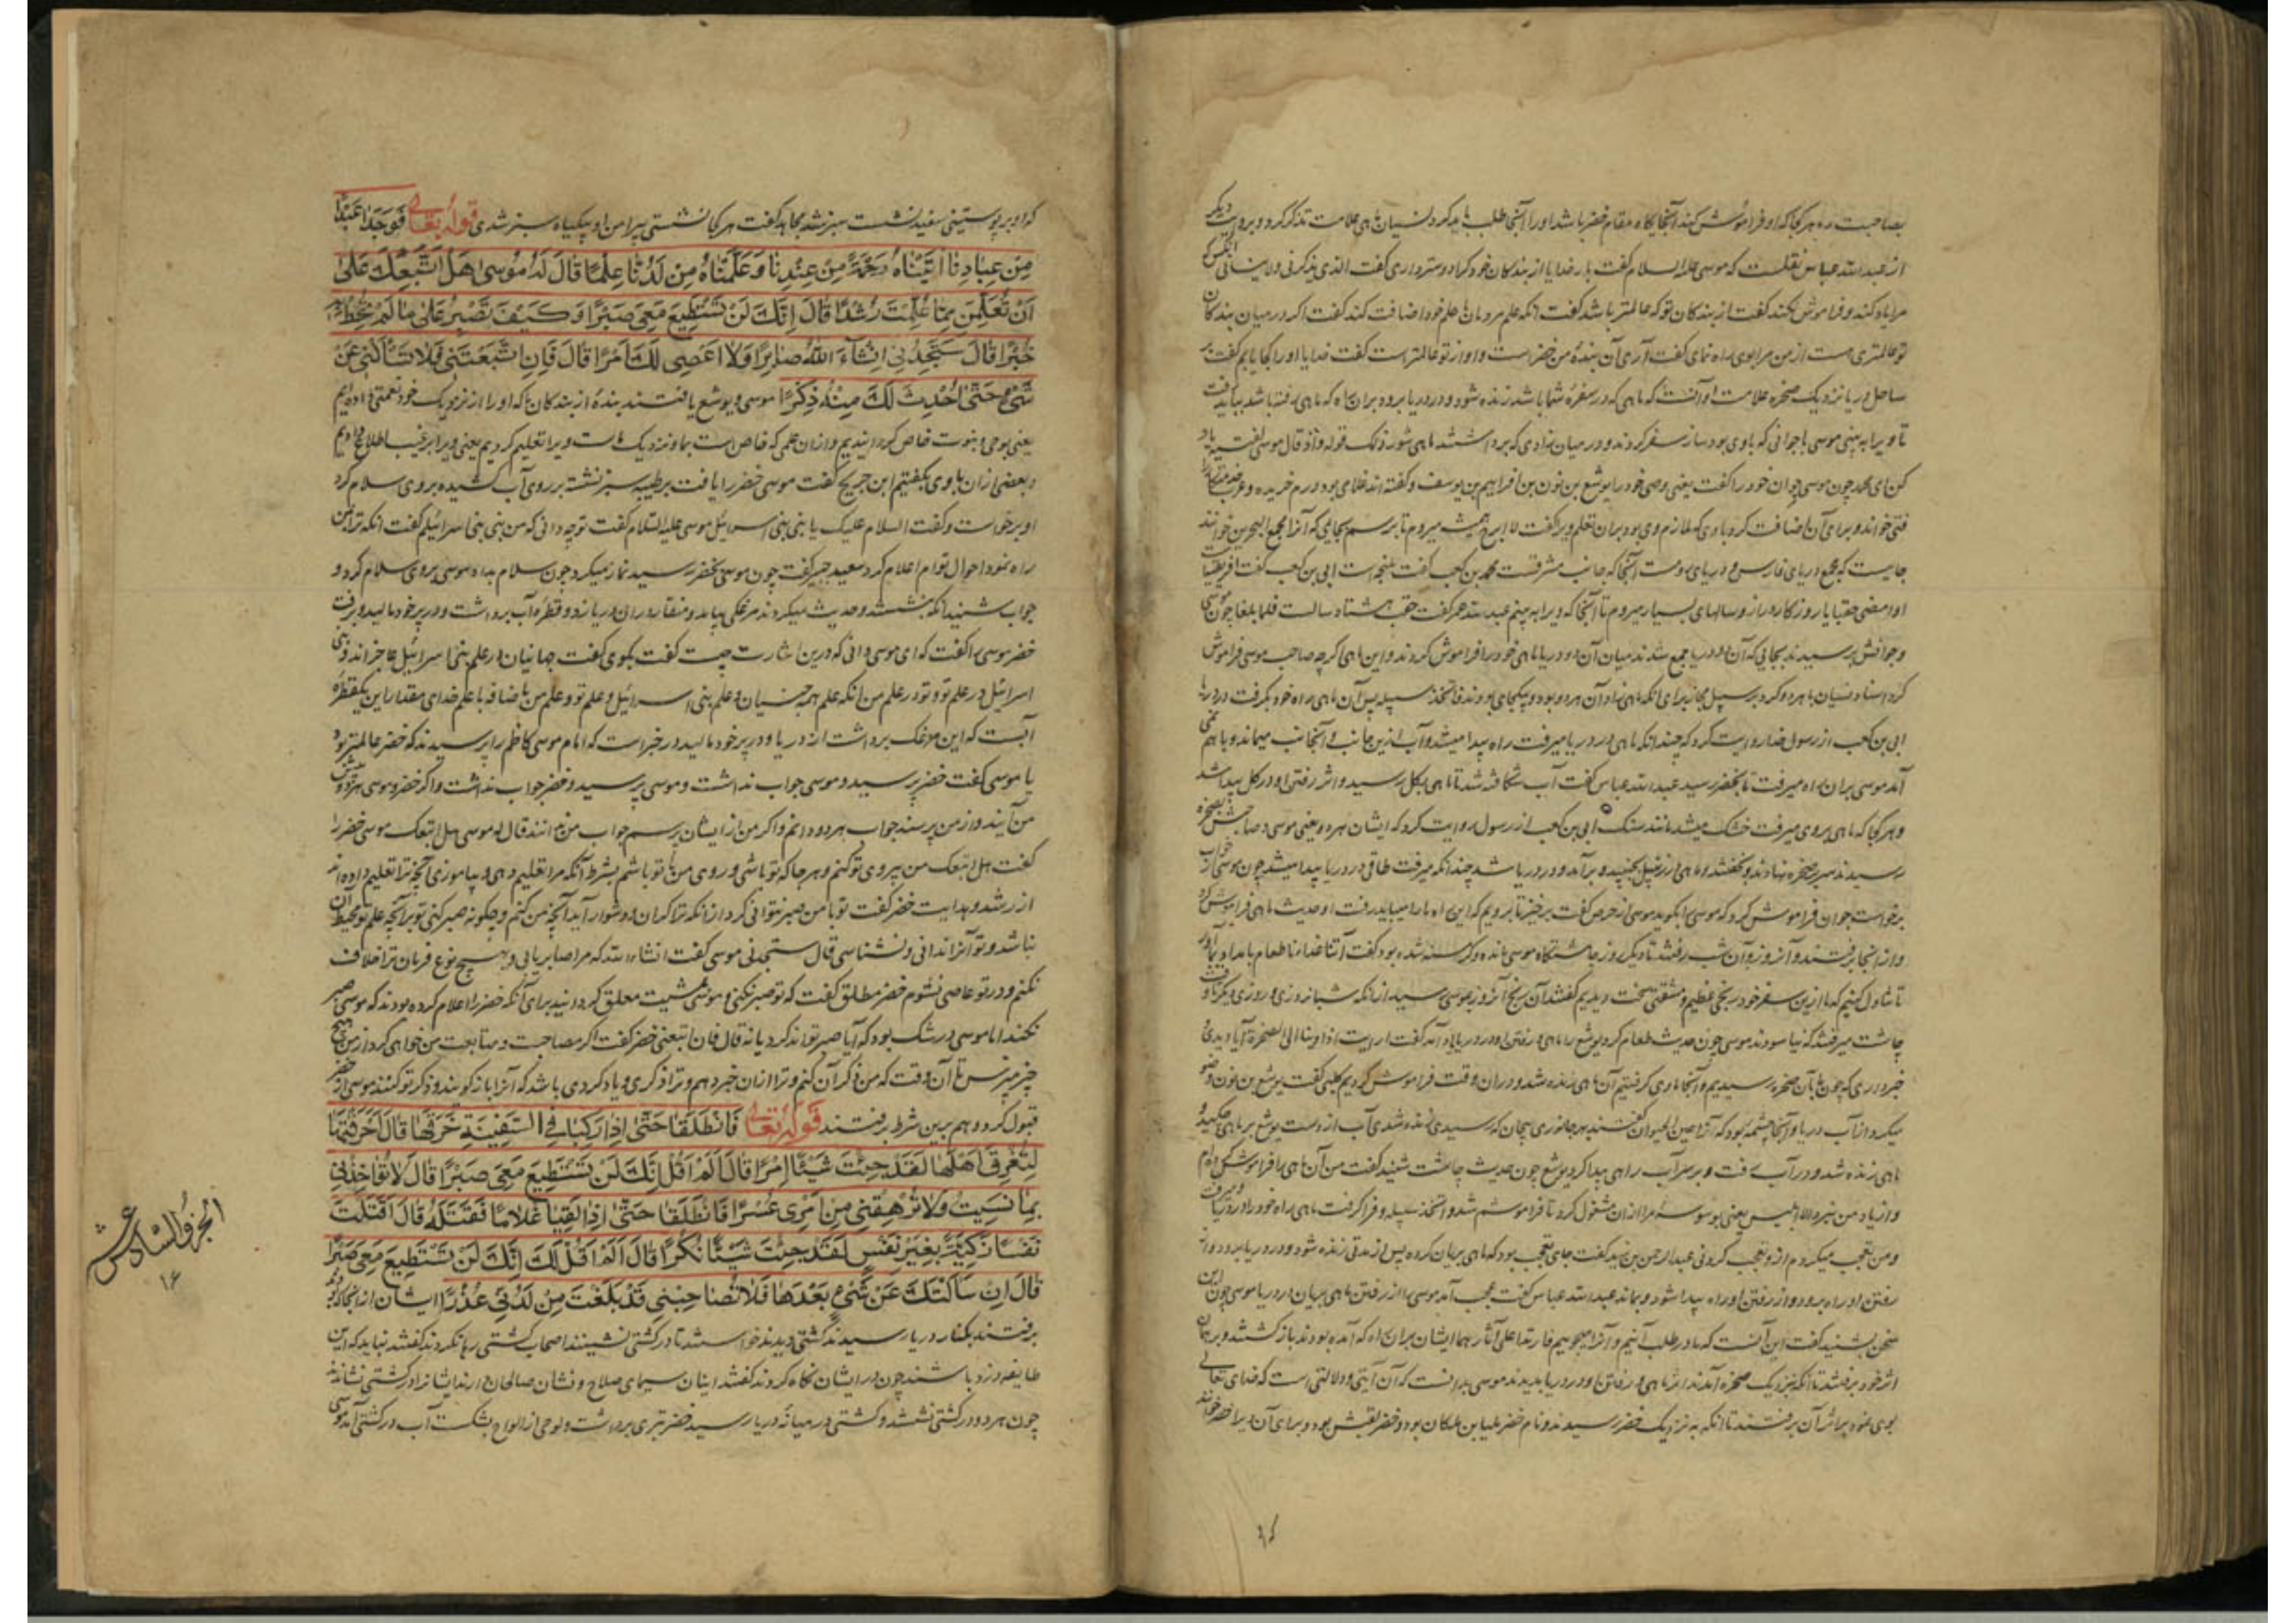 بصاحبت ره هر کجا که او فراموش کند آنجایکاه مقام خضر باشد او را آنجا طلب باید کرد نسیان ماهی علامت تذکر کرد و بروایت دیگر
از عبدالله عباس نقلست که موسی علیه السلام گفت بار خدایا از بندکان خود کرا دوستر داری گفت الذی یذکرنی ولاینسانی آنکس که
مرا یاد کند و فراموش نکند گفت از بندکان تو که عالمتر باشد گفت آنکه علم مردمان با علم خود اضافت کند گفت اکر در میان بندکان
تو عالمتری هست از من مرا بوی راه نمای گفت آری آن بندهٔ من خضر است و او از تو عالمتر است گفت خدایا او را کجا یابم گفت بر
ساحل دریا نزدیک صخره علامت او آنست که ماهی که در سفرهٔ شما باشد زنده شود و در دریا برود بران راه که ماهی رفته باشد بباید رفت
تا ویرا به بینی موسی با جوانی که با وی بود ساز سفر کردند و در میان زادی که برداشتند ماهی شور نمک قوله واذ قال موسی لفتیه یاد
کن ای محمد چون موسی جوان خود را گفت یعنی وصی خود را یوشع بن نون بن افراهیم بن یوسف و گفته اند غلامی بود درم خریده و عرب
فتی خواند و برای آن اضافت کرد باوی که ملازم وی بود بران تعلم ویرا گفت لا ابرح همیشه میروم تا برسم بجایی که آنرا مجمع البحرین خوانند
جایست که مجمع دریای فارس و دریای روم است آنجا که جانب مشرقست محمد بن کعب گفت طنجه است ابی بن کعب گفت افریقیاست
او امضی حقبا یا روزکار دراز و سالهای بسیار میروم تا آنجا که ویرا به بینم عبدالله عمر گفت حقب هشتاد سالست فلما بلغا چون موسی
و جوانش برسیدند بجایی که آن دو دریا جمع شدند میان آن دو دریا ماهی خود را فراموش کردند و این ماهی اکرچه صاحب موسی فراموش
کرد اسناد نسیان با هردو کرد بر سبیل مجاز برای آنکه ماهی زاد آن هردو بود و بیکجای بودند فاتخذ سبیله پس آن ماهی راه خود بکرفت در دریا
ابی بن کعب از رسول خدا روایت کرد که چندانکه ماهی در دریا میرفت راه پیدا میشد و آب ازین جانب و آنجانب میماند و باهم نمی
آمد موسی بران راه میرفت تا بخضر رسید عبدالله عباس گفت آب شکافته شد تا ماهی بکل رسید و اثر رفتن او در کل پیدا شد
و هر کجا که ماهی بروی میرفت خشک میشد مانند سنک ابی بن کعب از رسول روایت کرد که ایشان هردو یعنی موسی و صاحبش بصخره
رسیدند سر بر صخره نهادند و بخفتند و ماهی از زنبیل بجنبید و برآمد و در دریا شد چندانکه میرفت طاقی در دریا پیدا میشد چون موسی از خواب
برخواست جوان فراموش کرد که موسی را بکوید موسی از حرص گفت برخیز تا برویم که این راه ما را میباید رفت او حدیث ماهی فراموش کرد
و از آنجا برفتند و آنروز و آن شب رفتند تا دیکر روز چاشتکاه موسی مانده و کرسنه شده بود گفت آتنا غداءنا طعام بامداد بیاور
تا تناول کنیم که ما ازین سفر خود رنجی عظیم و مشقتی سخت دیدیم گفتند آن رنج آنروز بموسی رسید از آنکه شبانروزی و روزی دیکر تا وقت
چاشت میرفتند که نیاسودند موسی چون حدیث طعام کرد یوشع را ماهی و رفتن او در دریا یاد آمد گفت ارایت اذ اوینا الی الصخرة آیا دیدی
خبر داری که چون ما بآن صخره رسیدیم و آنجا ماوی کرفتیم آن ماهی زنده شد و دران وقت فراموش کردیم کلبی گفت یوشع بن نون وضو
میکرد از آب دریا و آنجا چشمه بود که آنرا عین الحیوان گفتند بهر جانوری بیجان که رسیدی زنده شدی آب از دست یوشع بر ماهی چکید و
ماهی زنده شد و در آب رفت و بر سر آب راهی پیدا کرد یوشع چون حدیث چاشت شنید گفت من آن ماهی را فراموش کردم
و از یاد من نبرد الا ابلیس یعنی بوسوسه مرا ازان مشغول کرد تا فراموشم شد واتخذ سبیله و فرا کرفت ماهی راه خود را در دریا و میرفت
و من تعجب میکردم ازو تعجب کردنی عبدالرحمن بن زید گفت جای تعجب بود که ماهی بریان کرده پس از مدتی زنده شود و در دریا برود و از
رفتن او راه برود و از رفتن او راه پیدا شود و بماند عبدالله عباس گفت عجب آمد موسی را از رفتن ماهی بریان در دریا موسی چون این
سخن بشنید گفت این آنست که ما در طلب آنیم و آنرا میجوییم فارتدا علی آثارهما ایشان بران راه که آمده بودند باز کشتند و بر همان
اثر خود برفتند تا آنکه بنزدیک صخره آمدند اثر ماهی و رفتن او در دریا بدیدند موسی بدانست که آن آیتی و دلالتی است که خدای تعالی
بوی نمود براثر آن برفتند تا آنکه به نزدیک خضر رسیدند و نام خضر بلیا بن ملکان بود و خضر لقبش بود و برای آن ویرا خضر خوانند
که او بر پوستینی سفید نشست سبز شد مجاهد گفت هر کجا نشستی پیرامن او پکیاه سبز شدی قوله تعالی فَوَجَدَا عَبْدًا
مِنْ عِبَادِنَا آتَيْنَاهُ رَحْمَةً مِنْ عِنْدِنَا وَعَلَّمْنَاهُ مِنْ لَدُنَّا عِلْمًا قَالَ لَهُ مُوسَىٰ هَلْ أَتَّبِعُكَ عَلَىٰ
أَنْ تُعَلِّمَنِ مِمَّا عُلِّمْتَ رُشْدًا قَالَ إِنَّكَ لَنْ تَسْتَطِيعَ مَعِيَ صَبْرًا وَكَيْفَ تَصْبِرُ عَلَىٰ مَا لَمْ تُحِطْ بِهِ
خُبْرًا قَالَ سَتَجِدُنِي إِنْ شَاءَ اللَّهُ صَابِرًا وَلَا أَعْصِي لَكَ أَمْرًا قَالَ فَإِنِ اتَّبَعْتَنِي فَلَا تَسْأَلْنِي عَنْ
شَيْءٍ حَتَّىٰ أُحْدِثَ لَكَ مِنْهُ ذِكْرًا موسی و یوشع یافتند بندهٔ از بندکان ما که او را از نزدیک خود نعمتی داده ایم
یعنی بوحی و نبوت خاص کردانیدیم و ازان علمی که خاص است بما و نزدیک ماست ویرا تعلیم کردیم یعنی ویرا بر غیب اطلاع دادیم
و بعضی ازان باوی بکفتیم ابن جریج گفت موسی خضر را یافت بر طیبه سبز نشته بر روی آب کشیده بر وی سلام کرد
او برخواست و گفت السلام علیک یا نبی بنی اسرائیل موسی علیه السلام گفت تو چه دانی که من نبی بنی اسرائیلم گفت آنکه ترا بمن
راه نمود احوال تو ام اعلام کرد سعید جبیر گفت چون موسی بخضر رسید نماز میکرد چون سلام بداد موسی بروی سلام کرد و
جواب شنید آنکه بنشستند و حدیث میکردند مرغکی بیامد و منقار دران دریا زد و قطرهٔ آب برداشت و در پر خود مالید و برفت
خضر موسی را گفت که ای موسی دانی که درین اشارت چیست گفت بکوی گفت جهانیان در علم بنی اسرائیل عاجزاند و بنی
اسرائیل در علم تو و تو در علم من آنکه علم همه جنیان و علم بنی اسرائیل و علم تو و علم من باضافه با علم خدای مقدار این یکقطرهٔ
آبست که این مرغک برداشت از دریا و در پر خود مالید در خبر است که امام موسی کاظم را پرسیدند که خضر عالمتر بود
یا موسی گفت خضر پرسید و موسی جواب نداشت و موسی پرسید و خضر جواب نداشت و اکر خضر و موسی هردو پیش
من آیند و از من پرسند جواب هردو دانم و اکر من از ایشان پرسم جواب من ندانند قال له موسی هل اتبعک موسی خضر را
گفت هل اتبعک من پیروی تو کنم و هر جا که تو باشی و روی من با تو باشم بشرط آنکه مرا تعلیم دهی و بیاموزی آنچه ترا تعلیم داده اند
از رشد و هدایت خضر گفت تو با من صبر نتوانی کرد از آنکه ترا کران و دشوار آید آنچه من کنم و چکونه صبر کنی تو بر آنچه علم تو محیط آن
نباشد و تو آنرا ندانی و نشناسی قال ستجدنی موسی گفت انشاءالله که مرا صابر یابی و بهیچ نوع فرمان ترا خلاف
نکنم و در تو عاصی نشوم خضر مطلق گفت که تو صبر نکنی و موسی بمشیت معلق کردانید برای آنکه خضر را اعلام کرده بودند که موسی صبر
نکند اما موسی در شک بود که آیا صبر تواند کرد یا نه قال فان اتبعتنی خضر گفت اکر مصاحبت و متابعت من خواهی کرد از من هیچ
چیز مپرس تا آن وقت که من ذکر آن کنم و ترا ازان خبر دهم و ترا ذکری و یادکردی باشد که آنرا باز کویند و ذکر تو کنند موسی از خضر
قبول کرد و هم برین شرط برفتند قوله تعالی فَانْطَلَقَا حَتَّىٰ إِذَا رَكِبَا فِي السَّفِينَةِ خَرَقَهَا قَالَ أَخَرَقْتَهَا
لِتُغْرِقَ أَهْلَهَا لَقَدْ جِئْتَ شَيْئًا إِمْرًا قَالَ أَلَمْ أَقُلْ إِنَّكَ لَنْ تَسْتَطِيعَ مَعِيَ صَبْرًا قَالَ لَا تُؤَاخِذْنِي
بِمَا نَسِيتُ وَلَا تُرْهِقْنِي مِنْ أَمْرِي عُسْرًا فَانْطَلَقَا حَتَّىٰ إِذَا لَقِيَا غُلَامًا فَقَتَلَهُ قَالَ أَقَتَلْتَ
نَفْسًا زَكِيَّةً بِغَيْرِ نَفْسٍ لَقَدْ جِئْتَ شَيْئًا نُكْرًا قَالَ أَلَمْ أَقُلْ لَكَ إِنَّكَ لَنْ تَسْتَطِيعَ مَعِيَ صَبْرًا
قَالَ إِنْ سَأَلْتُكَ عَنْ شَيْءٍ بَعْدَهَا فَلَا تُصَاحِبْنِي قَدْ بَلَغْتَ مِنْ لَدُنِّي عُذْرًا ایشان از آنجا که بود
برفتند بکنار دریا رسیدند کشتی دیدند خواستند تا در کشتی نشینند اصحاب کشتی رها نکردند گفتند نباید که این
طایفه دزد باشند چون در ایشان نکاه کردند گفتند اینان سیمای صلاح و نشان صالحان دارند ایشانرا در کشتی نشاندند
چون هردو در کشتی نشستند و کشتی در میانه دریا رسید خضر تبری برداشت و لوحی از الواح بشکست آب در کشتی آمد موسی
الجزو السادس عشر
۱۶